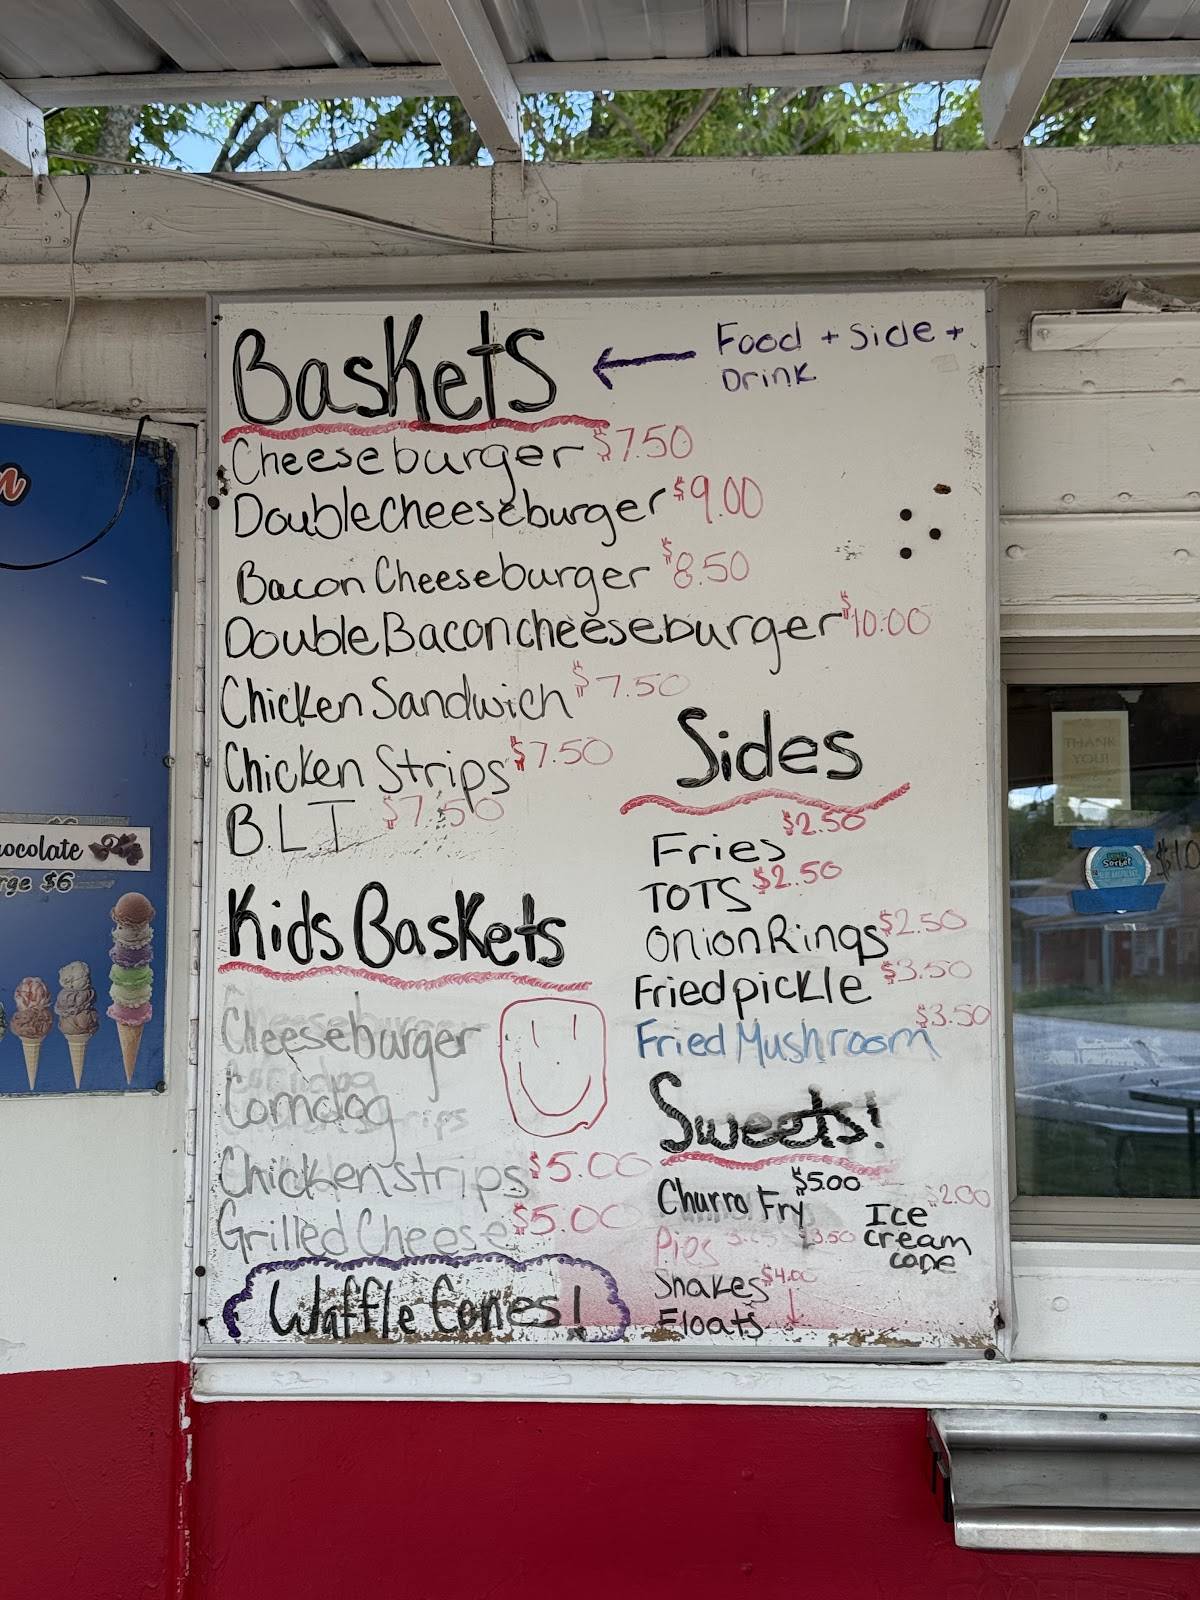 Baskets
Food + Side +
Drink
Cheeseburger $7.50
Double Cheeseburger $9.00
Bacon Cheeseburger $8.50
Double Bacon cheeseburger $10.00
Chicken Sandwich $7.50
Chicken Strips $7.50
B.L.T $7.50
Kids Baskets
Cheeseburger
Corndog
Chicken strips $5.00
Grilled Cheese $5.00
Waffle Cones!
Sides
Fries $2.50
TOTS $2.50
Onion Rings $2.50
Fried pickle $3.50
Fried Mushroom $3.50
Sweets!
Churro Fry $5.00
Pies $3.50
Shakes $4.00
Floats
Ice $2.00
cream
cone
ocolate
rge $6
THANK
YOU!
Sorbet